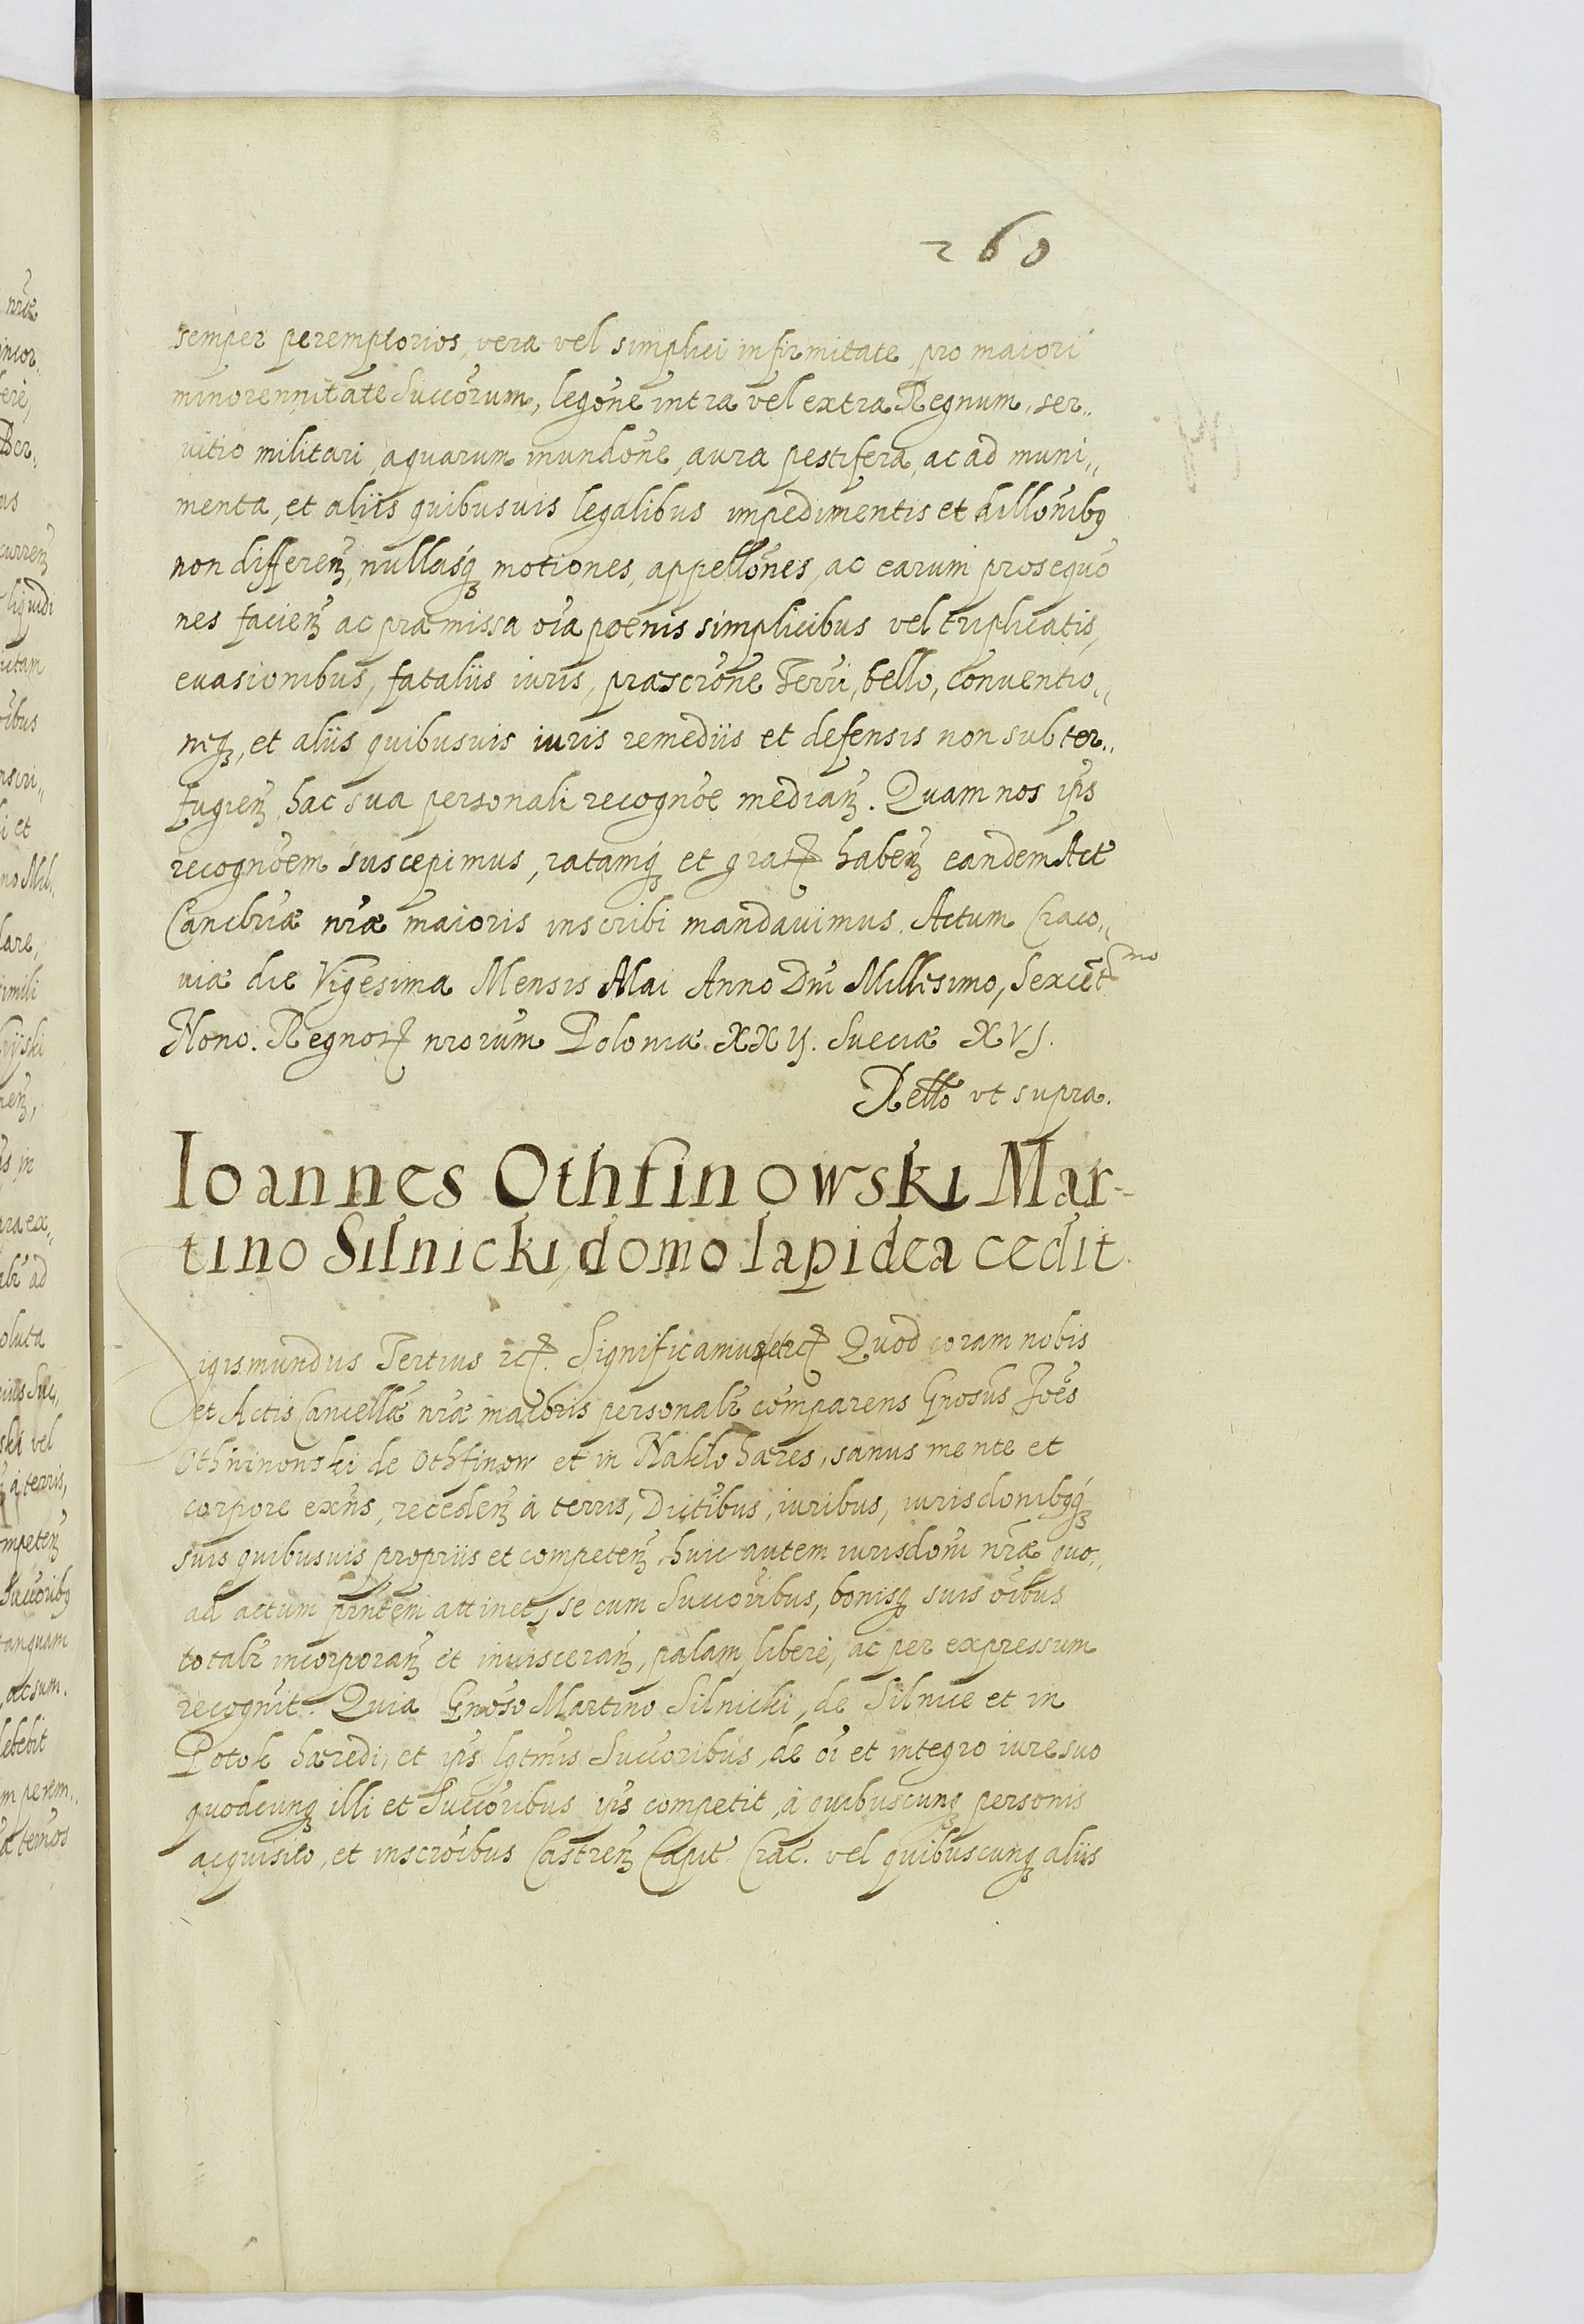 260
semper peremptorios, vera vel simplici infirmitate, pro maiori
minorennitate Succorum, legone intra vel extra Regnum, ser„
vitio militari, aquarum inundone, aura pestifera, ac ad muni„
menta, et aliis quibusuis legalibus impedimentis et dillonibq
non differen, nullasq motiones, appellones, ac earum prosequo
nes facien ac præmissa oia poenis simplicibus vel triplicatis,
euasionibus, fataliis iuris, præscrone Terri, bello, conuentio„
neq, et aliis quibusuis iuris remediis et defensis non subter„
fugien, hac sua personali recognoe median. Quam nos ips
recognoem suscepimus, ratamq et grat habem eandem Act
Cancbriæ nræ maioris inscribi mandauimus. Actum Craco„
uiæ die Vigesima Mensis Mai Anno Dni Millesimo, Sexcetmo
Nono. Regnor nrorum Poloniæ XXIJ. Sueciæ XVJ.
Rello vt supra.
Ioannes Othfinowski Mar-
tino Silnicki, domo lapidea cedit.
Sigismundus Tertius etc. Significamus etc Quod coram nobis
et Actis Cancellæ nræ maioris personalr comparens Gnosus Joes
Othfinowski de Othfinow et in Naklo hæres, sanus mente et
corpore exns, receden a terris, Dictibus, iuribus, iurisdonibqq
suis quibusuis propriis et competen, huic autem iurisdoni nræ quo„
ad actum pntem attinet, se cum Succoribus, bonisq suis oibus
totalr incorporan et inuisceran, palam, libere, ac per expressum
recognit. Quia Gnoso Martino Silnicki, de Silnice et in
Potok hæredi, et ips lgtmis Succoribus, de oi et integro iure suo
quodcunq illi et Succoribus ips competit, a quibuscunq personis
acquisito, et inscroibus Castren Capit. Crac. vel quibuscunq aliis